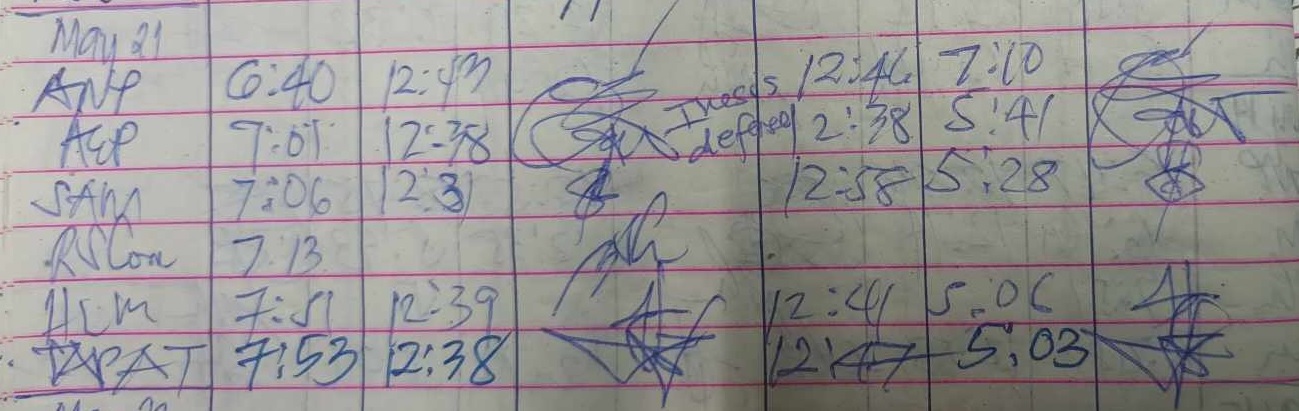 May 21
ANP 6:40 12:43 Thesis 12:46 7:10
AGP 7:01 12:38 defense 12:38 5:41
SAM 7:06 12:31 12:58 5:28
RSCon 7:13
HLM 7:51 12:39 12:41 5:06
TAPAT 7:53 12:38 12:47 5:03